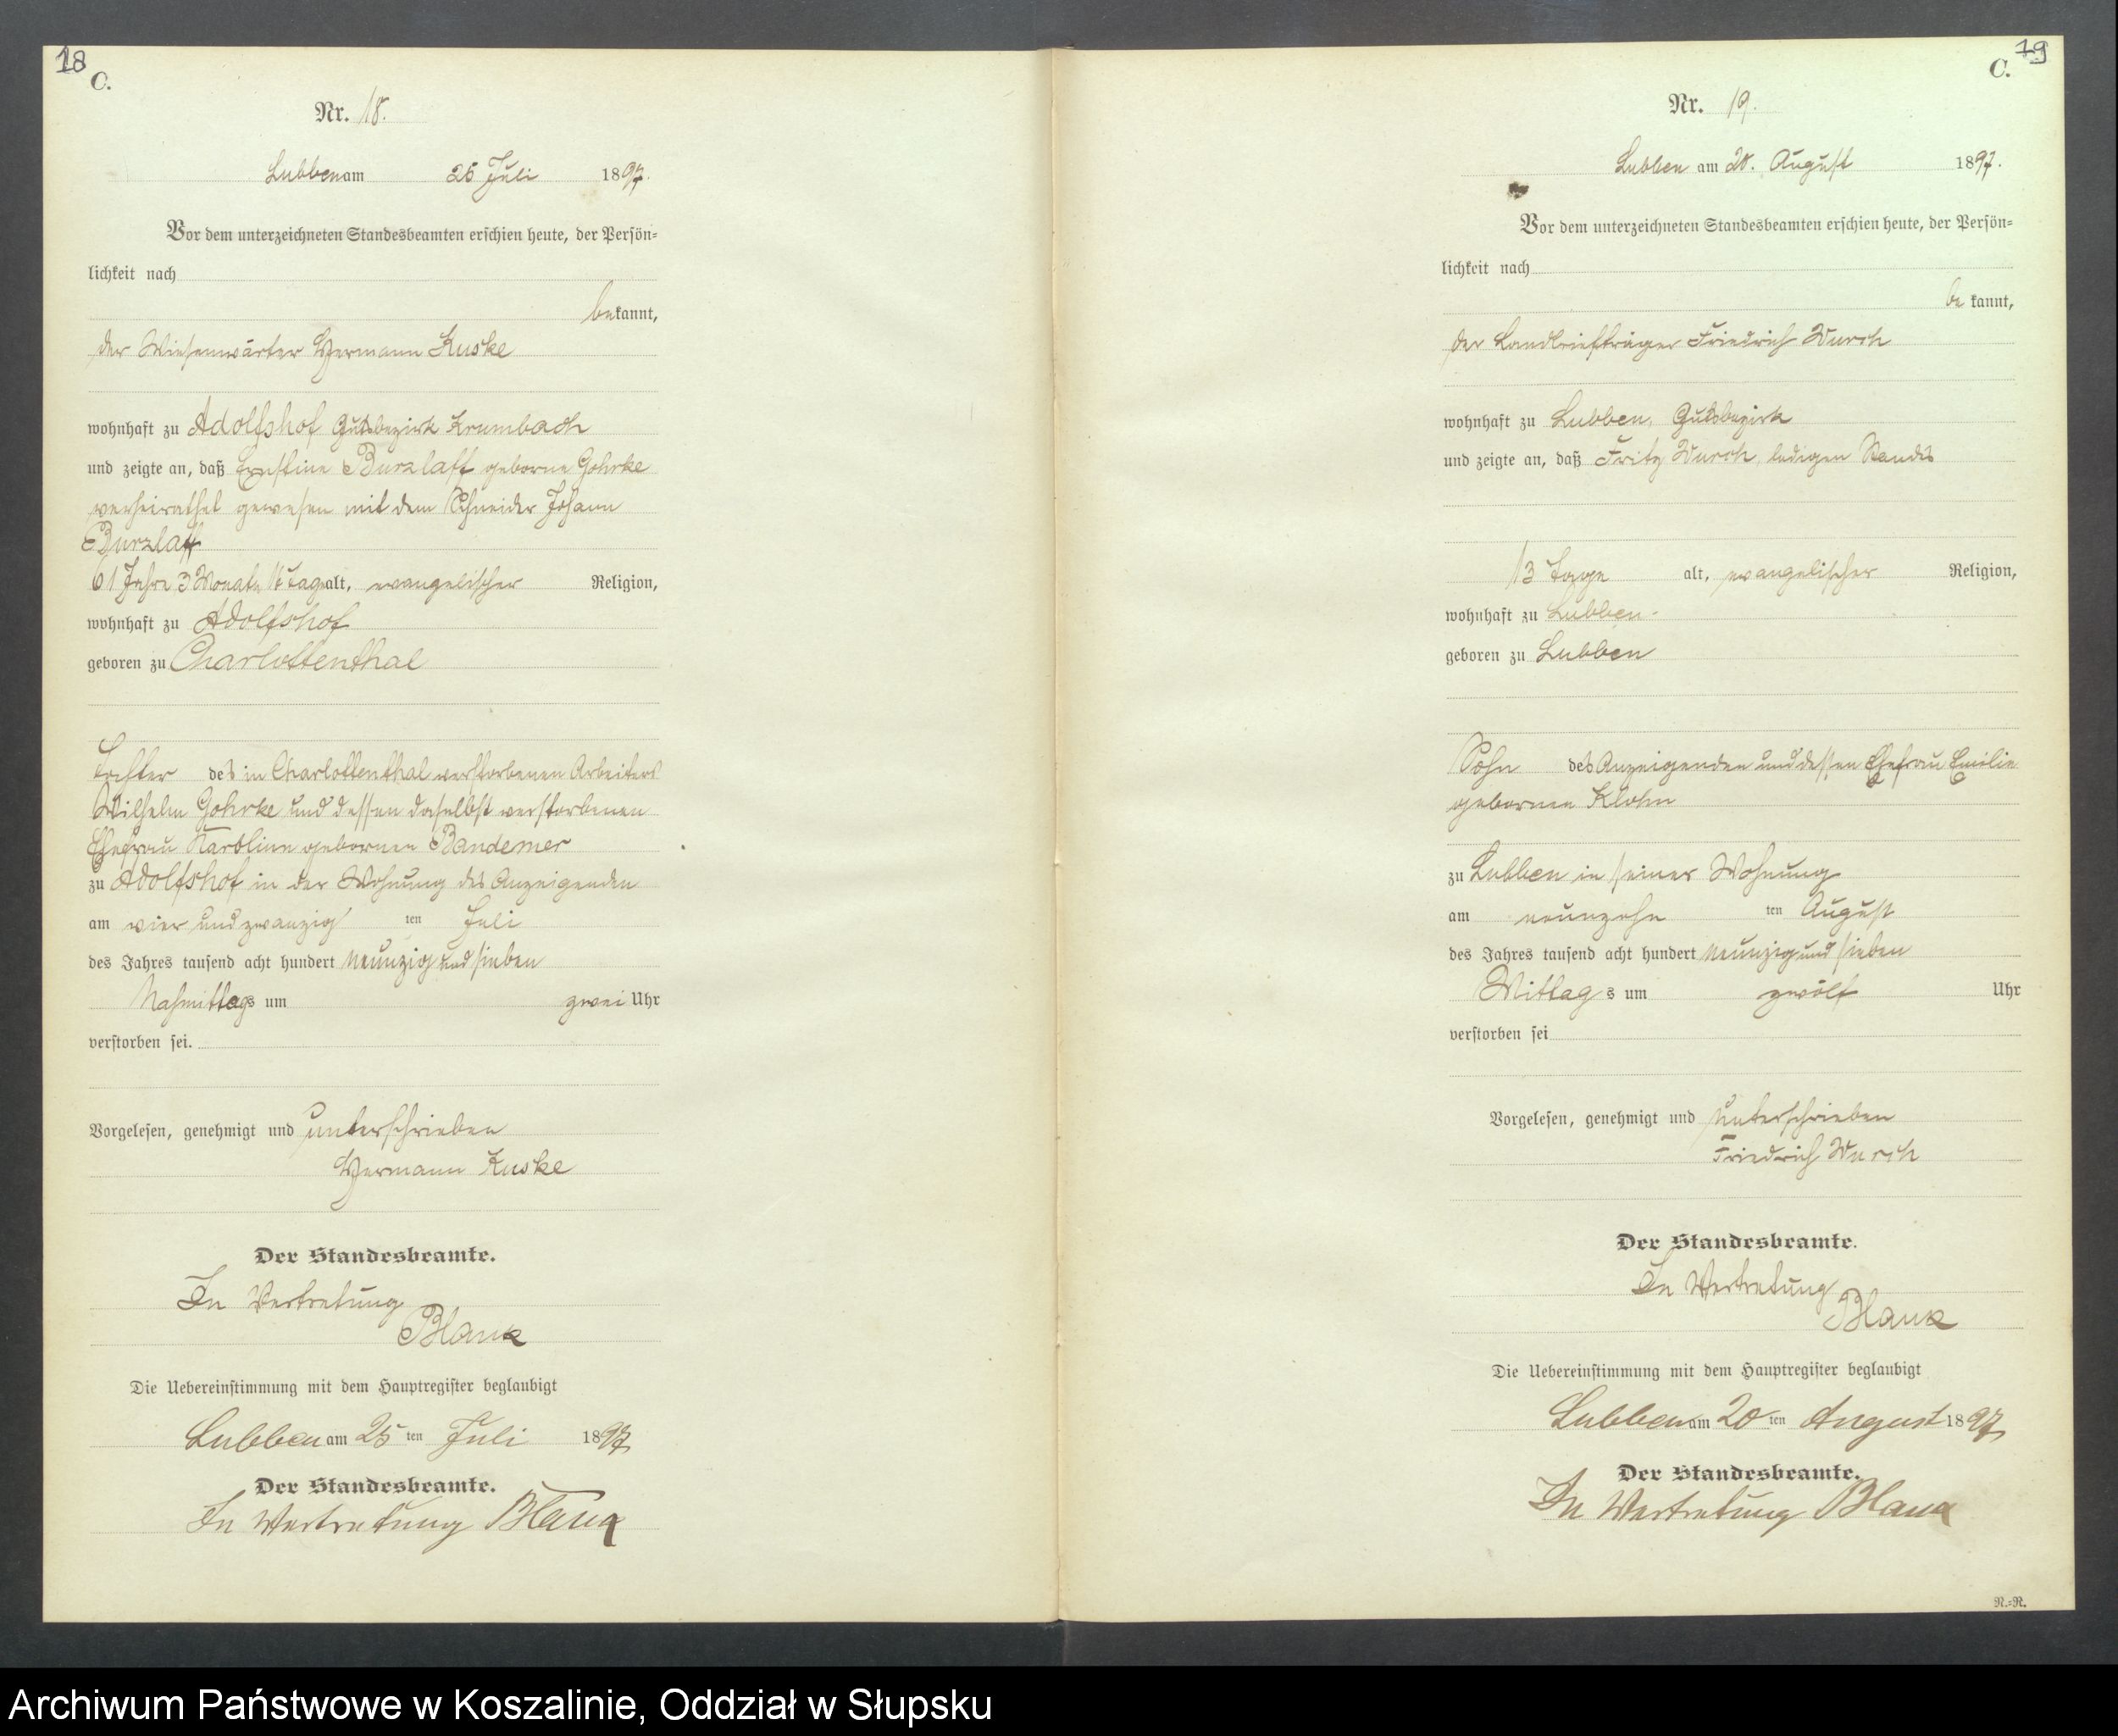 18
C.
Nr. 18.
Lubben am 25 Juli 1897.
Vor dem unterzeichneten Standesbeamten erschien heute, der Persön-
lichkeit nach
bekannt,
der Wiesenwärter Hermann Kuske
wohnhaft zu Adolfshof Gutsbezirk Krumbach
und zeigte an, daß Ernstine Burzlaff geborne Gohrke
verheirathet gewesen mit dem Schneider Johann
Burzlaff
61 Jahre 3 Monate 16 Tage alt, evangelischer Religion,
wohnhaft zu Adolfshof
geboren zu Charlottenthal
Tochter des in Charlottenthal verstorbenen Arbeiters
Wilhelm Gohrke und dessen daselbst verstorbenen
Ehefrau Karoline gebornen Bandemer
zu Adolfshof in der Wohnung des Anzeigenden
am vier und zwanzig ten Juli
des Jahres tausend acht hundert neunzig und sieben
Nachmittags um zwei Uhr
verstorben sei.
Vorgelesen, genehmigt und unterschrieben
Hermann Kuske
Der Standesbeamte.
In Vertretung
Blank
Die Uebereinstimmung mit dem Hauptregister beglaubigt
Lubben am 25 ten Juli 1897
Der Standesbeamte.
In Vertretung Blank
19
C.
Nr. 19.
Lubben am 20. August 1897.
Vor dem unterzeichneten Standesbeamten erschien heute, der Persön-
lichkeit nach
be kannt,
der Landbriefträger Friedrich Wurch
wohnhaft zu Lubben, Gutsbezirk
und zeigte an, daß Fritz Wurch, ledigen Standes
13 Tage alt, evangelischer Religion,
wohnhaft zu Lubben
geboren zu Lubben
Sohn des Anzeigenden und dessen Ehefrau Emilie
gebornen Klohn
zu Lubben in seiner Wohnung
am neunzehn ten August
des Jahres tausend acht hundert neunzig und sieben
Mittag s um zwölf Uhr
verstorben sei
Vorgelesen, genehmigt und unterschrieben
Friedrich Wurch
Der Standesbeamte.
In Vertretung
Blank
Die Uebereinstimmung mit dem Hauptregister beglaubigt
Lubben am 20 ten August 1897
Der Standesbeamte.
In Vertretung Blank
N.=R.
Archiwum Państwowe w Koszalinie, Oddział w Słupsku